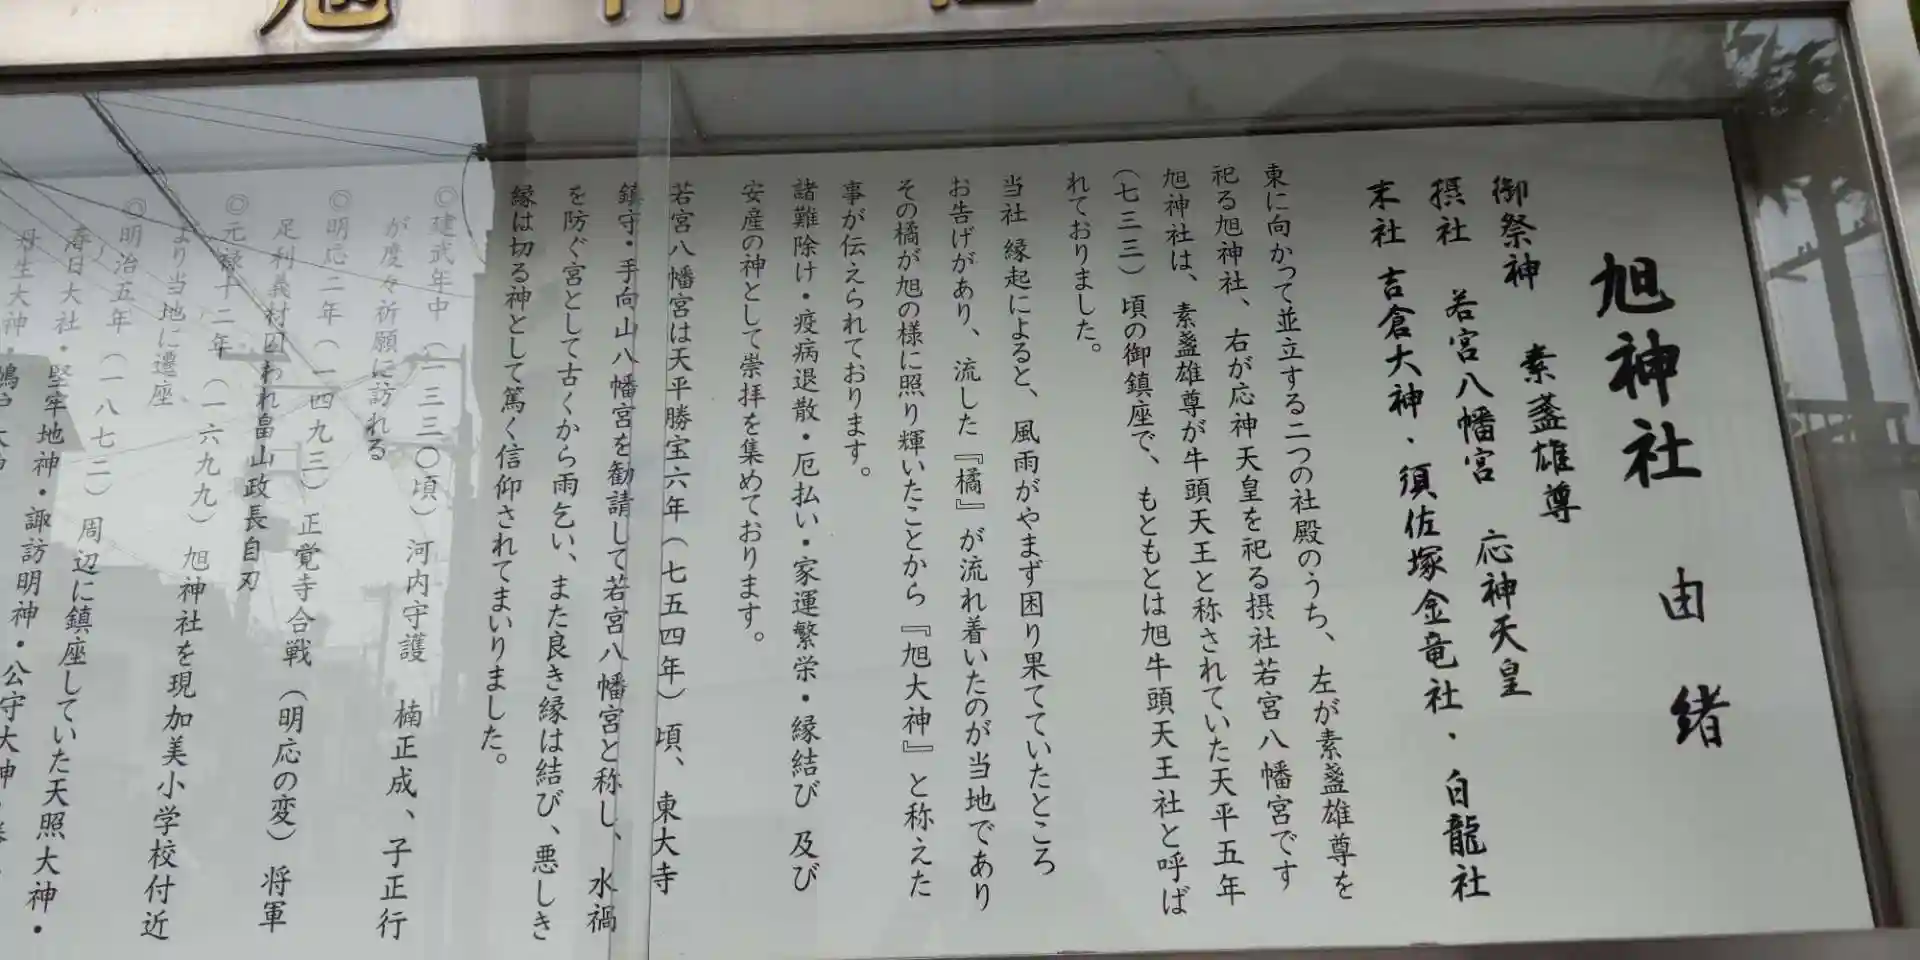 旭神社
旭神社 由緒
御祭神 素盞雄尊
摂社 若宮八幡宮 応神天皇
末社 吉倉大神・須佐塚金竜社・白龍社
東に向かって並立する二つの社殿のうち、左が素盞雄尊を
祀る旭神社、右が応神天皇を祀る摂社若宮八幡宮です
旭神社は、素盞雄尊が牛頭天王と称されていた天平五年
(七三三)頃の御鎮座で、もともとは旭牛頭天王社と呼ば
れておりました。
当社縁起によると、風雨がやまず困り果てていたところ
お告げがあり、流した『橘』が流れ着いたのが当地であり
その橘が旭の様に照り輝いたことから『旭大神』と称えた
事が伝えられております。
諸難除け・疫病退散・厄払い・家運繁栄・縁結び 及び
安産の神として崇拝を集めております。
若宮八幡宮は天平勝宝六年(七五四年)頃、東大寺
鎮守・手向山八幡宮を勧請して若宮八幡宮と称し、水禍
を防ぐ宮として古くから雨乞い、また良き縁は結び、悪しき
縁は切る神として篤く信仰されてまいりました。
◎建武年中(一三三〇頃)河内守護 楠正成、子正行
が度々祈願に訪れる
◎明応二年(一四九三)正覚寺合戦(明応の変)将軍
足利義材囚われ畠山政長自刃
◎元禄十二年(一六九九)旭神社を現加美小学校付近
より当地に遷座
◎明治五年(一八七二)周辺に鎮座していた天照大神・
春日大社・堅牢地神・諏訪明神・公守大神
丹生大神